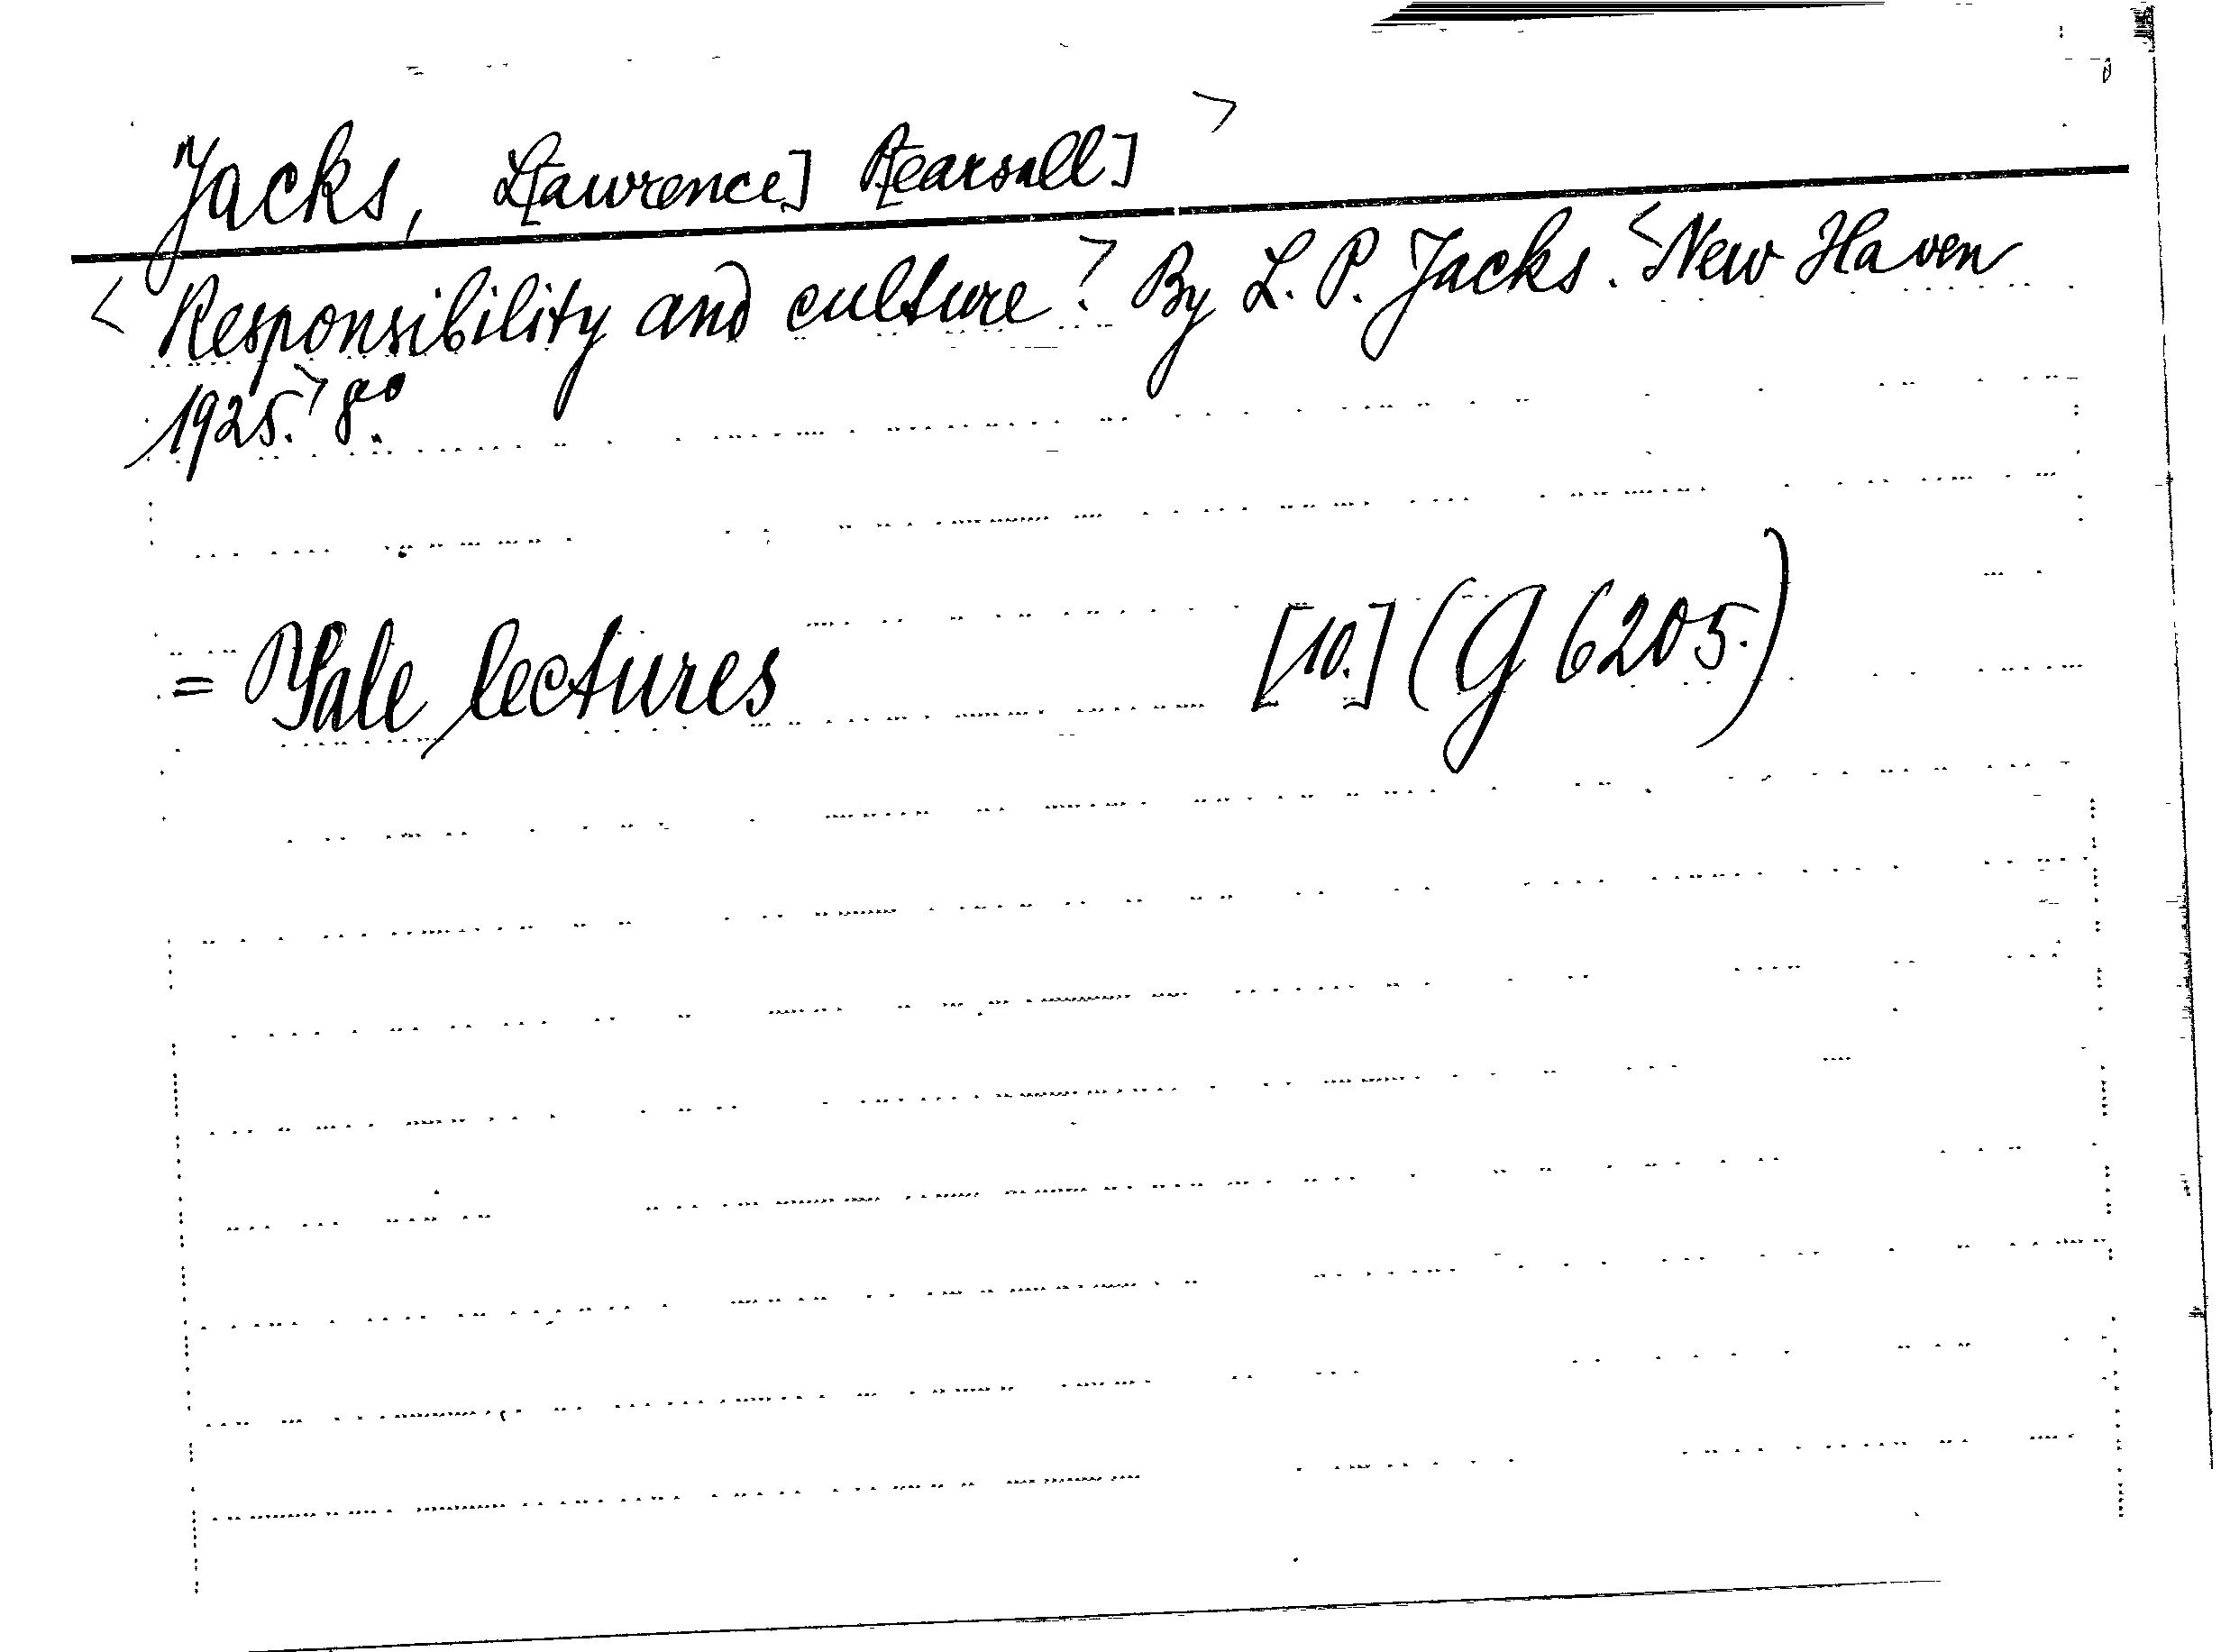 Jacks, L[awrence] P[earsall] >
< Responsibility and culture. > By L. P. Jacks. < New Haven
1925. > 8°.
= Yale lectures [10.] (G 6205.)